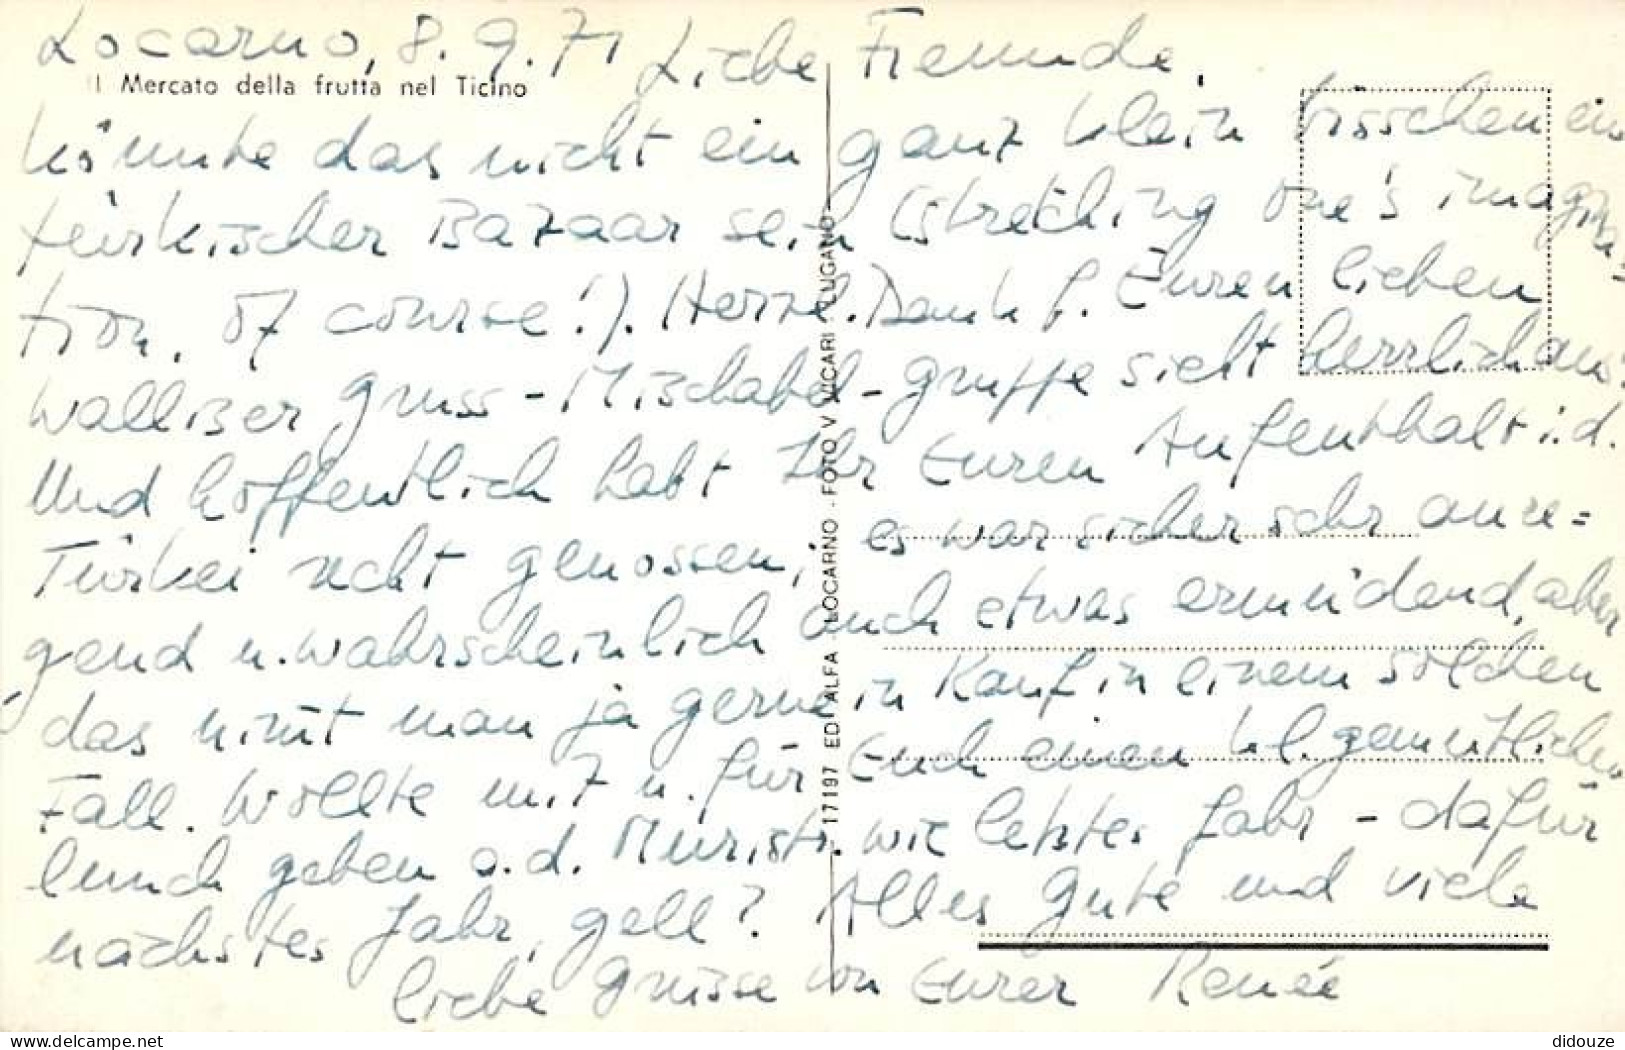 Locarno, 8.9.71 Liebe Freunde,
Il Mercato della frutta nel Ticino
könnte das nicht ein ganz klein bisschen ein
türkischer Bazaar sein (stretching one's imagina=
tion, of course!). Herzl. Dank f. Euren lieben
Walliser gruss - Mischabel-gruppe sieht herrlich aus!
Und hoffentlich habt Ihr Euren Aufenthalt i.d.
Türkei recht genossen, es war sicher sehr anre=
gend u. wahrscheinlich auch etwas ermüdend, aber
das nimt man ja gerne in Kauf in einem solchen
Fall. Wollte mit u. für Euch einen kl. gemütlichen
lunch geben a.d. Muristr. wie letztes Jahr - dafür
nächstes Jahr, gell? Alles gute und viele
liebe grüsse von Eurer Renée
17197 ED. ALFA LOCARNO - FOTO V. VICARI LUGANO
delcampe.net
didouze